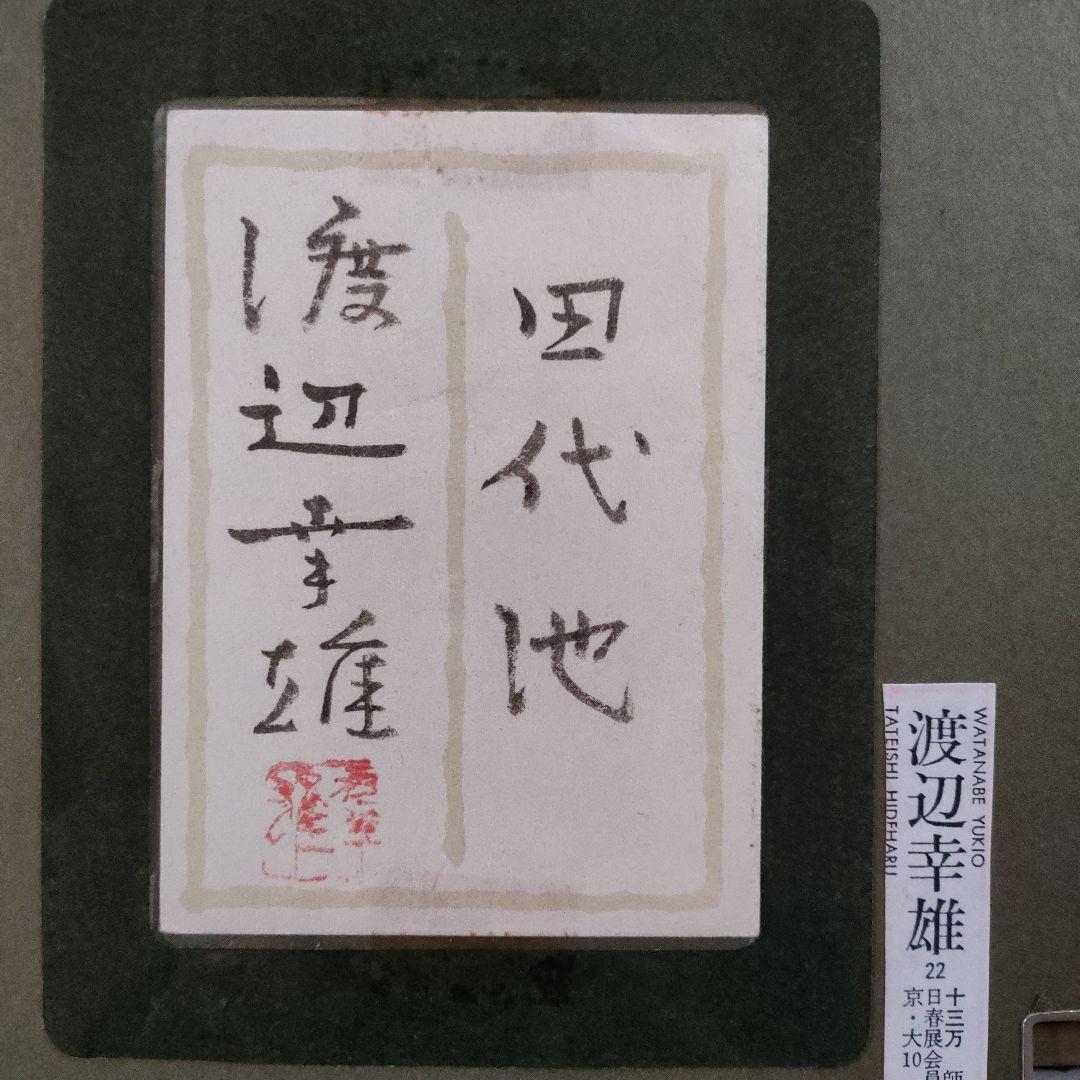 田代池
渡辺幸雄
WATANABE YUKIO
渡辺幸雄
22
十三万 師
日春展会員
京・大10
TATEISHI HIDEHARU